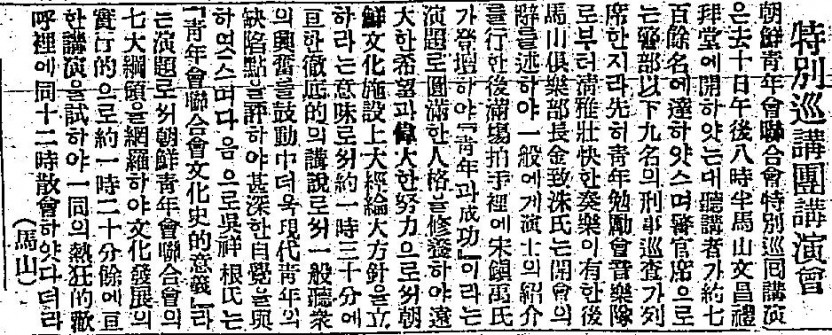 特別巡講團講演會
朝鮮青年會聯合會特別巡囘講演
은去十日午後八時半馬山文昌禮
拜堂에開하얏는대聽講者가約七
百餘名에達하얏스며警官席으로
는警部以下九名의刑事巡査가列
席한지라先히青年勉勵會音樂隊
로부터淸雅壯快한奏樂이有한後
馬山俱樂部長金致洙氏는開會의
辭를述하야一般에게演士의紹介
를行한後滿場拍手裡에宋鎭萬氏
가登壇하야『青年과成功』이라는
演題로圓滿한人格을修養하야遠
大한希望과偉大한努力으로써朝
鮮文化施設上大經綸大方針을立
하라는意味로써約一時三十分에
亘한徹底的의講說로써一般聽衆
의興奮을鼓動中더욱現代青年의
缺陷點을評하야甚深한自覺을與
하엿스며다음으로吳祥根氏는
『青年會聯合會文化史的意義』라
는演題로써朝鮮青年會聯合會의
七大綱領을網羅하야文化發展의
實行的으로約一時二十分餘에亘
한講演을試하야一同의熱狂的歡
呼裡에同十二時散會하얏다더라
(馬山)